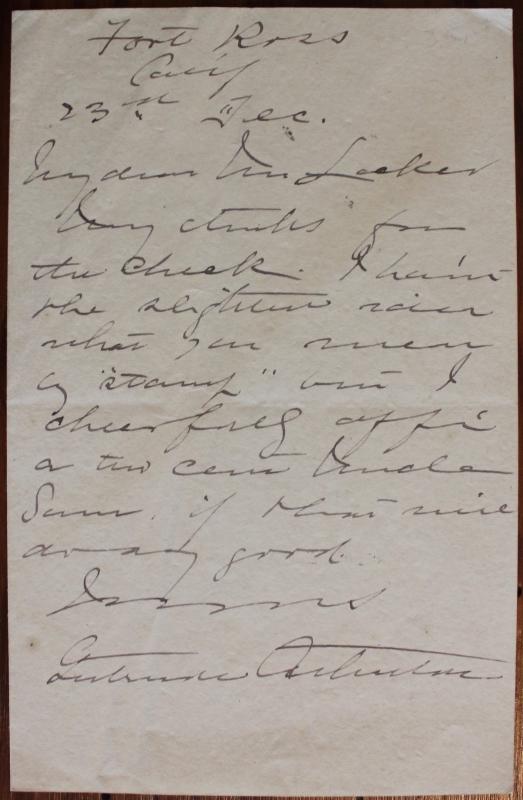 Fort Ross
Calif
23rd Dec.
My dear Mr Locker
Many thanks for
the check. I haven't
the slightest idea
what you mean
by "stamp" but I
cheerfully affix
a two cent Uncle
Sam, if that will
do any good.
Yours
Gertrude Atherton